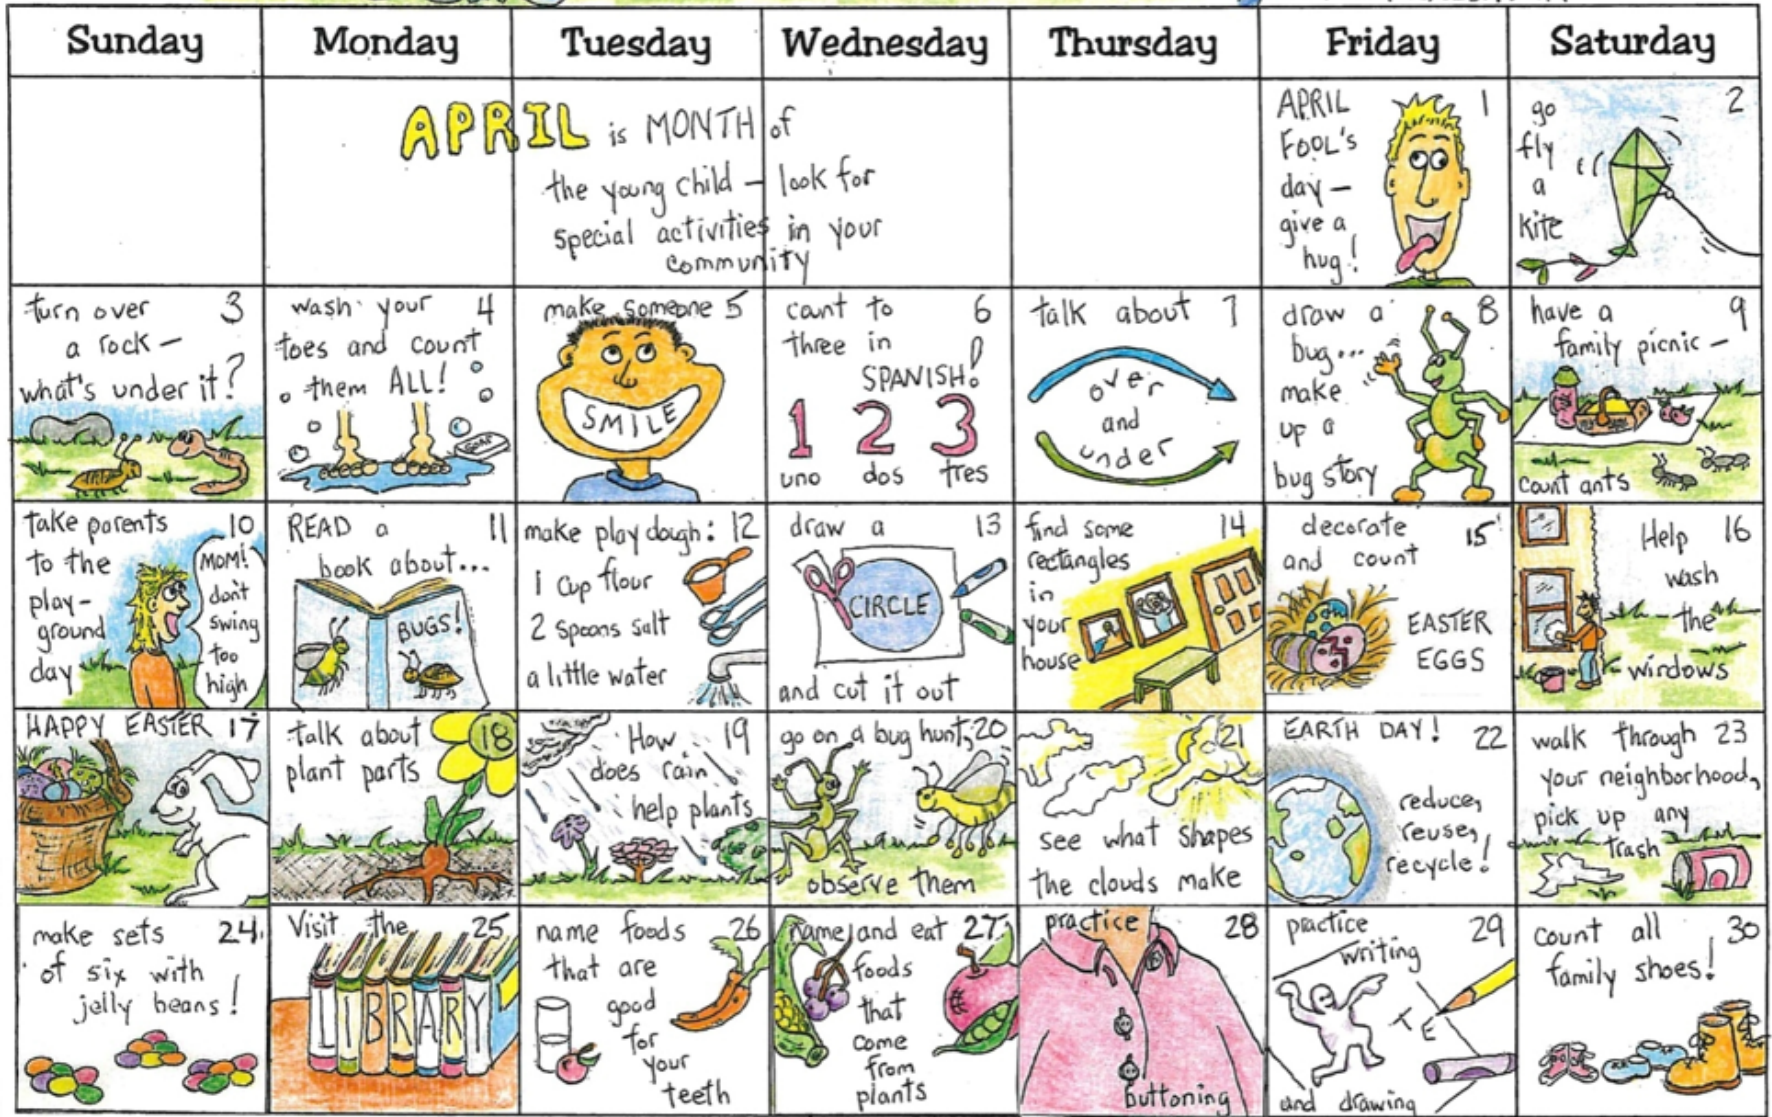 Sunday Monday Tuesday Wednesday Thursday Friday Saturday
APRIL is MONTH of
the young child – look for
special activities in your
community
APRIL 1
FOOL'S
day –
give a
hug!
go 2
fly
a
kite
turn over 3
a rock –
what's under it?
wash your 4
toes and count
them ALL!
SOAP
make someone 5
SMILE
count to 6
three in
SPANISH!
1 2 3
uno dos tres
talk about 7
over
and
under
draw a 8
bug...
make
up a
bug story
have a 9
family picnic –
count ants
take parents 10
to the
play-
ground
day
MOM!
don't
swing
too
high
READ a 11
book about...
BUGS!
make play dough: 12
1 cup flour
2 spoons salt
a little water
draw a 13
CIRCLE
and cut it out
find some 14
rectangles
in
your
house
decorate 15
and count
EASTER
EGGS
Help 16
wash
the
windows
HAPPY EASTER 17
talk about 18
plant parts
How 19
does rain
help plants
go on a bug hunt, 20
observe them
21
see what shapes
the clouds make
EARTH DAY! 22
reduce,
reuse,
recycle!
walk through 23
your neighborhood,
pick up any
trash
make sets 24
of six with
jelly beans!
Visit the 25
LIBRARY
name foods 26
that are
good
for
your
teeth
name and eat 27
foods
that
come
from
plants
practice 28
buttoning
practice 29
writing
and drawing
count all 30
family shoes!